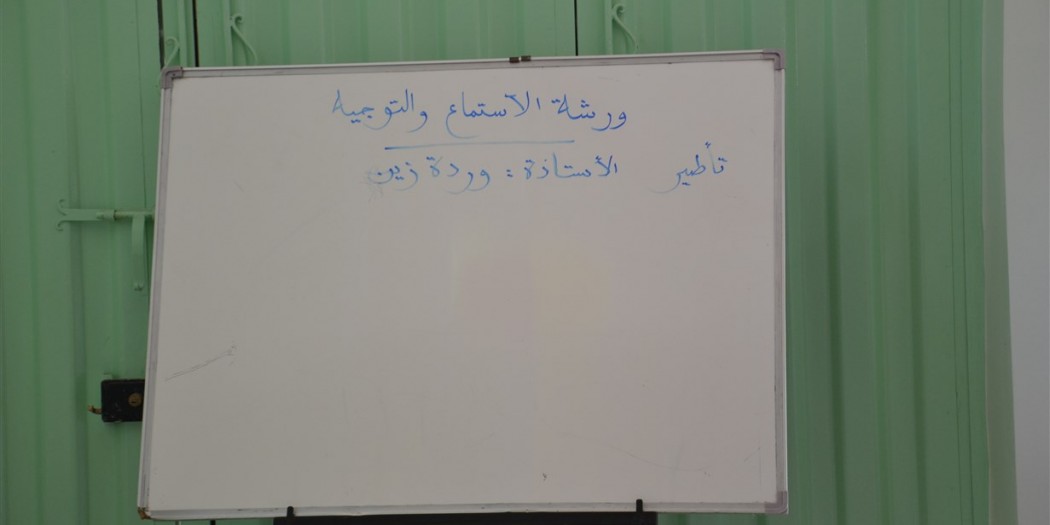 ورشة الأستماع والتوجيه
تأطير الأستاذة : وردة زين